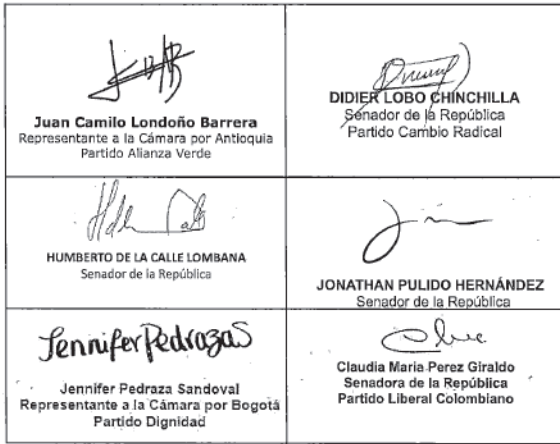 Juan Camilo Londoño Barrera
Representante a la Cámara por Antioquia
Partido Alianza Verde
DIDIER LOBO CHINCHILLA
Senador de la República
Partido Cambio Radical
HUMBERTO DE LA CALLE LOMBANA
Senador de la República
JONATHAN PULIDO HERNÁNDEZ
Senador de la República
Jennifer Pedrazas
Jennifer Pedraza Sandoval
Representante a la Cámara por Bogotá
Partido Dignidad
Claudia Maria Perez Giraldo
Senadora de la República
Partido Liberal Colombiano